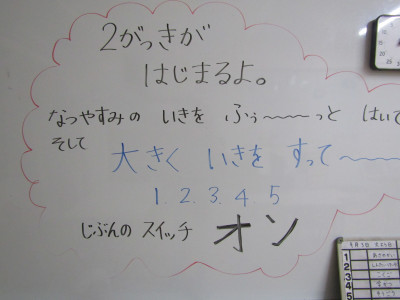 2がっきが
はじまるよ。
なつやすみの いきを ふぅ〜〜〜っと はいて
そして
大きく いきを すって〜〜〜
1.2.3.4.5
じぶんの スイッチ オン
1
2
3
4
5